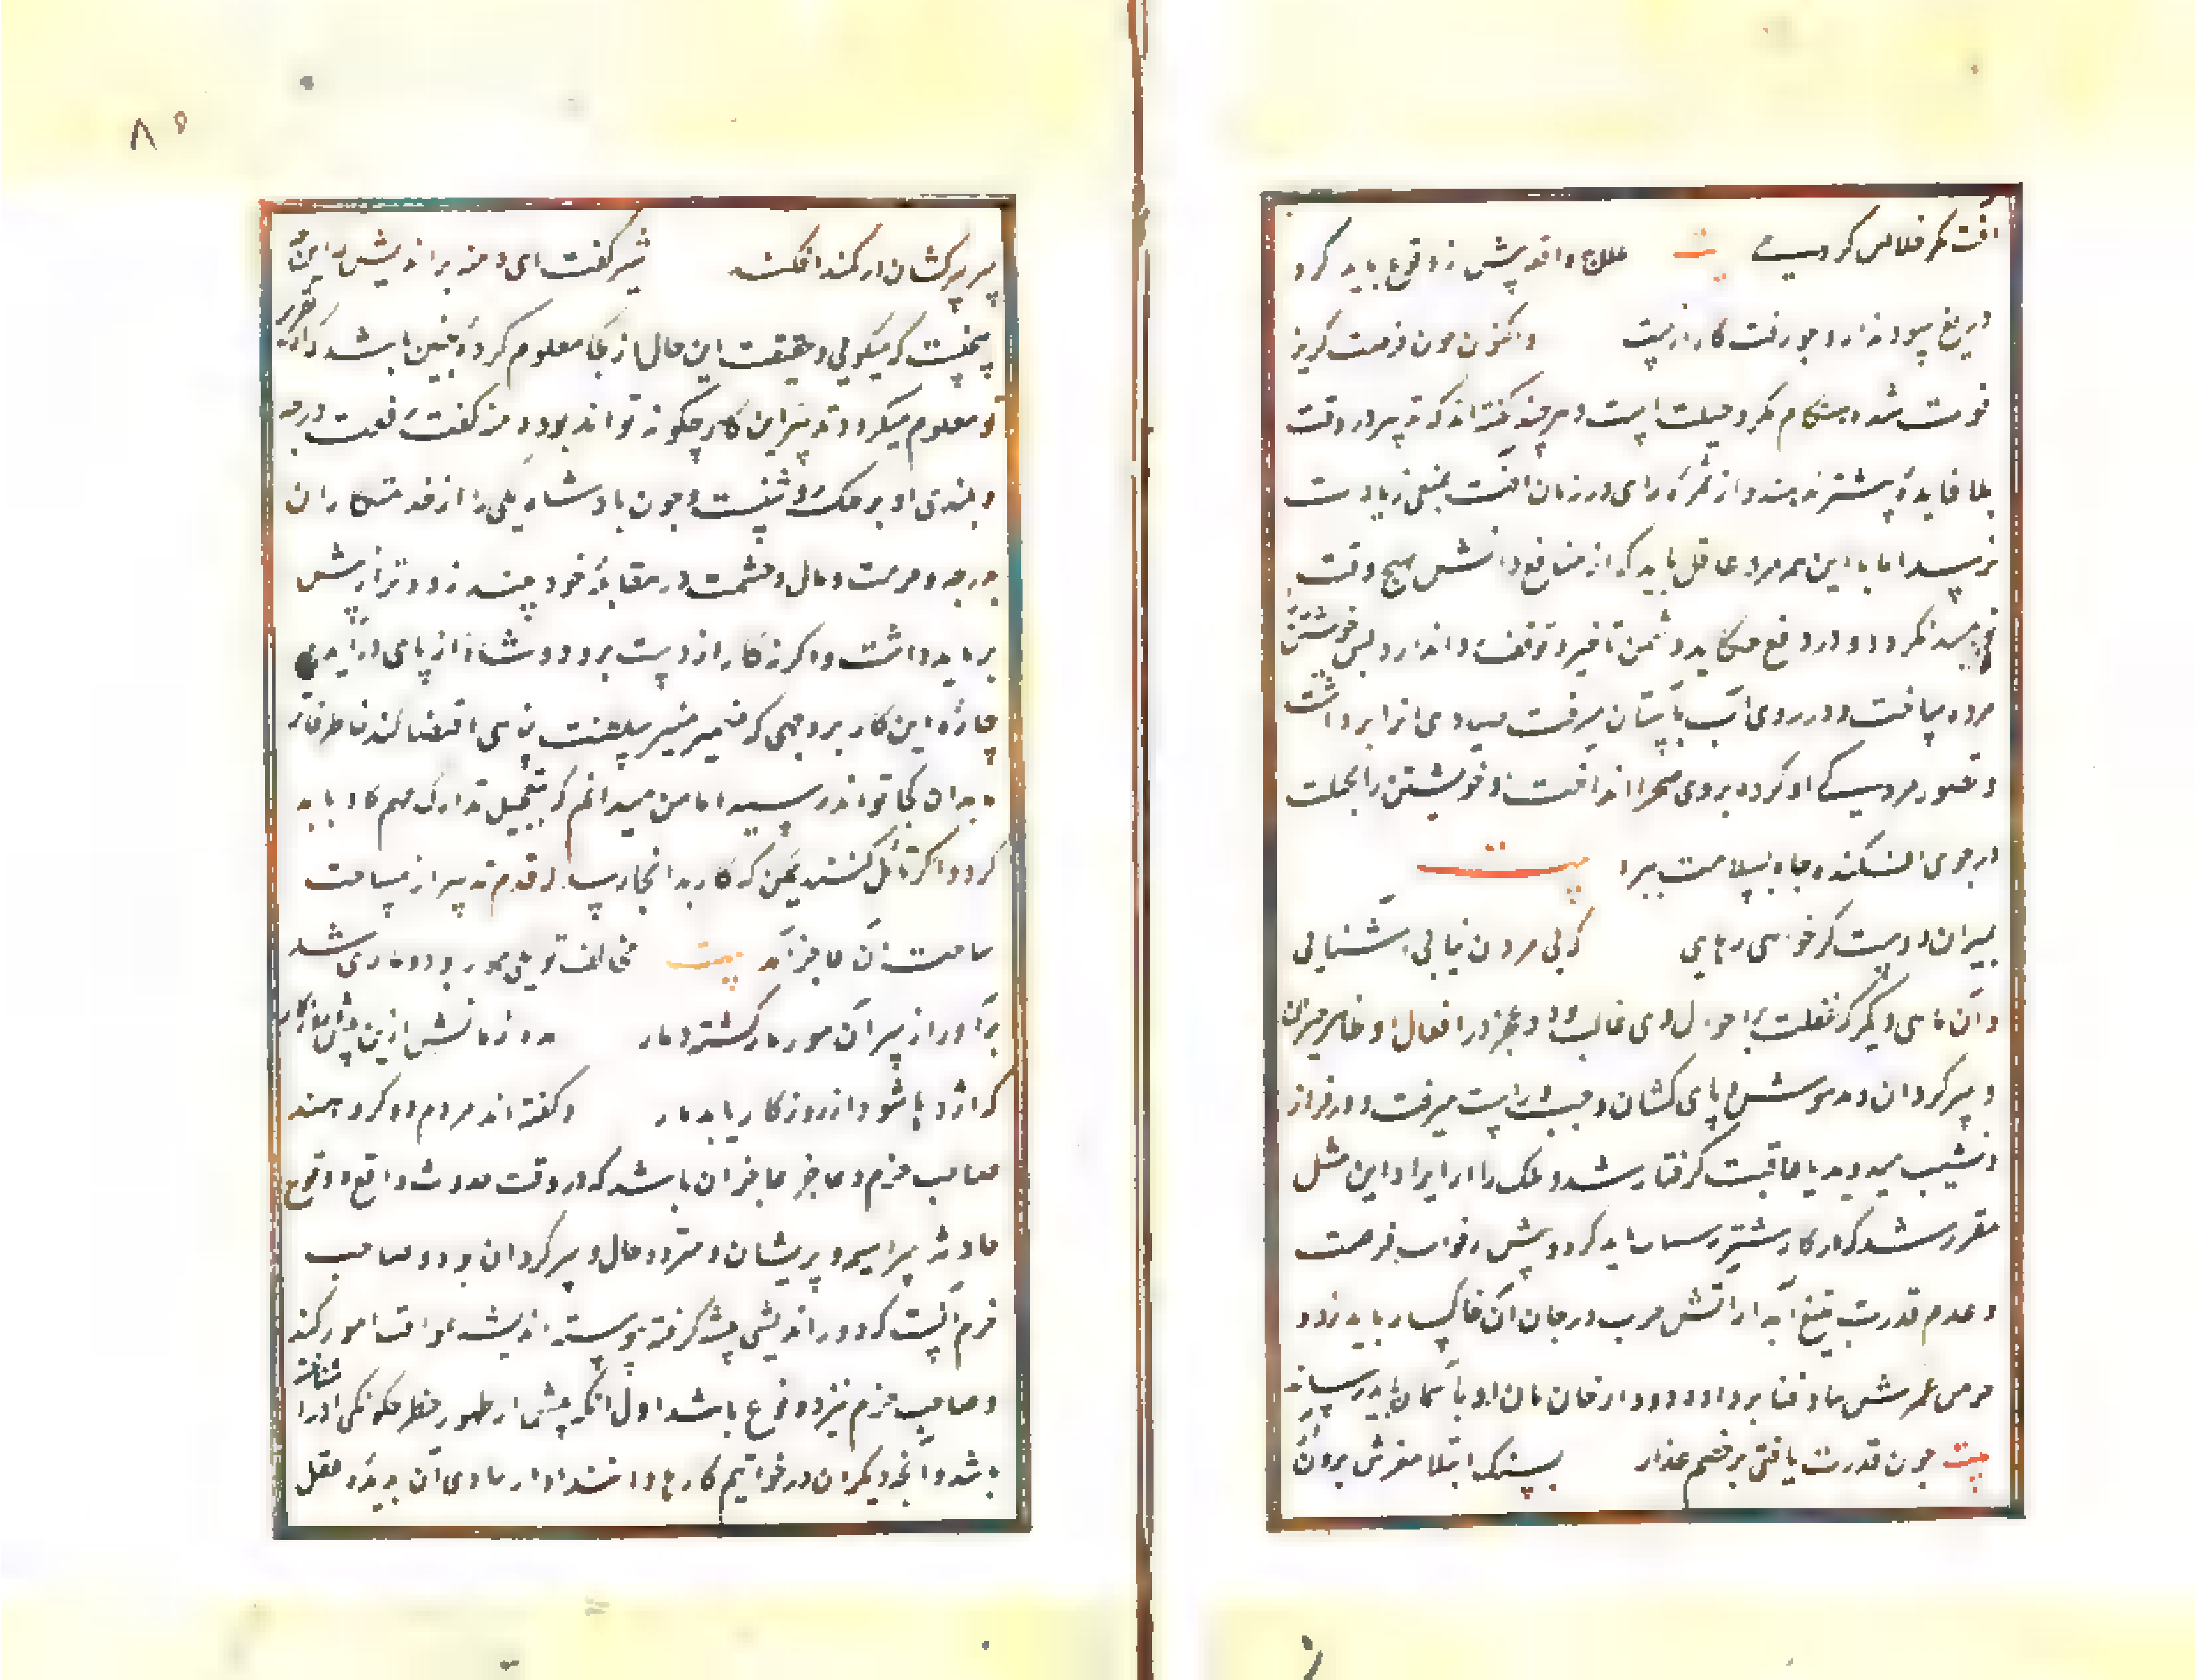 علاج واقعه پیش از وقوع باید کرد
دریغ سود ندارد چو رفت کار از دست واکنون چون فرصت گریز
فوت شد هنگام مکر و حیلت است و هر چند گفته‌اند که تدبیر در وقت
بلا فایده بیشتر ندهد و از ثمره رای در زمان آفت تمتعی زیادت
نرسد اما با این همه مرد عاقل باید که از منافع دانش هیچ وقت
نومید نگردد و در دفع مکاید دشمن تاخیر و توقف روا ندارد پس خویشتن
مرده ساخت و در روی آب بستان میرفت صیادی او را برداشت
و تصور مردگی او کرده بروی صحرا انداخت و خویشتن را بحیلت
در جوی افکنده جان بسلامت ببرد بیت
بمیر ای دوست گر خواهی رهایی که بی مردن نیابی آشنایی
و آن ماهی دیگر که غفلت بر احوال وی غالب بود و عجز در افعال او ظاهر حیران
و سرگردان و مدهوش و پای کشان چپ و راست میرفت و در فراز
و نشیب میدوید تا عاقبت گرفتار شد و ملک را از ایراد این مثل
مقرر شد که در کار شتربه شتاب باید کرد و پیش از فوات فرصت
و عدم قدرت بتیغ آبدار آتش حرب در جان آن خاکسار باید زد و
خرمن عمرش بباد فنا برداده دود از خان مان او بآسمان باید رسانید
بیت چون قدرت یافتی بر خصم غدار بسنگ ابتلا مغزش برون آر
شیر گفت ای دمنه
سخنیست که میگویی و حقیقت این حال از کجا معلوم کرده و چنین باشد که از تقریر
تو معلوم میگردد تدبیر این کار چگونه تواند بود دمنه گفت رفعت درجه
و بلندی او بر ملک روشنست و چون پادشاه یکی را از خدمتکاران
در درجه و حرمت و مال و حشمت در مقابله خود بیند زودتر از پیش
بر باید داشت و اگر نه کار از دست برود و شاه از پای درآید
چاره این کار بر وجهی که ضمیر منیر سلطنت پناهی اقتضا کند خاطر قاصر
بدان کجا تواند رسید اما من میدانم که بتعجیل تدارک مهم گاو باید
کرد و اگر تأمل کنند یمکن که کار بدانجا رسد که قدم تدبیر از مساحت
ساحت آن عاجز آید بیت مخالف تو یکی مور بود و ماری شد
برآور از سر آن مور مار گشته دمار مده زمانش ازین بیش
که اژدها شود از روزگار یابد مار و گفته‌اند مردم دو گروهند
صاحب حزم و عاجز عاجز آن باشد که در وقت حدوث واقع و وقوع
حادثه سراسیمه و پریشان و متردد حال و سرگردان بود و صاحب
حزم آنست که دوراندیشی پیشه گرفته پیوسته اندیشه عواقب امور کند
و صاحب حزم نیز دو نوع باشد اول آنکه پیش از ظهور خطر چگونگی آنرا شناخته
باشد و آنچه دیگران در خواتیم کارها دانند او در مبادی آن بدیده عقل